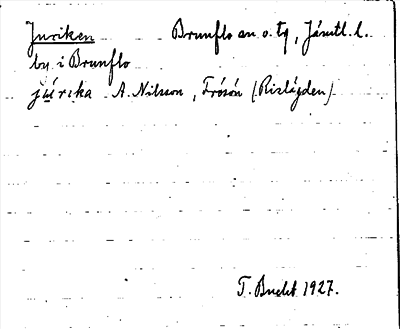 Juriken Brunflo sn o. tg, Jämtl. l.
by i Brunflo
júrıka A. Nilsson, Frösön (Rislägden)
T. Bucht 1927.